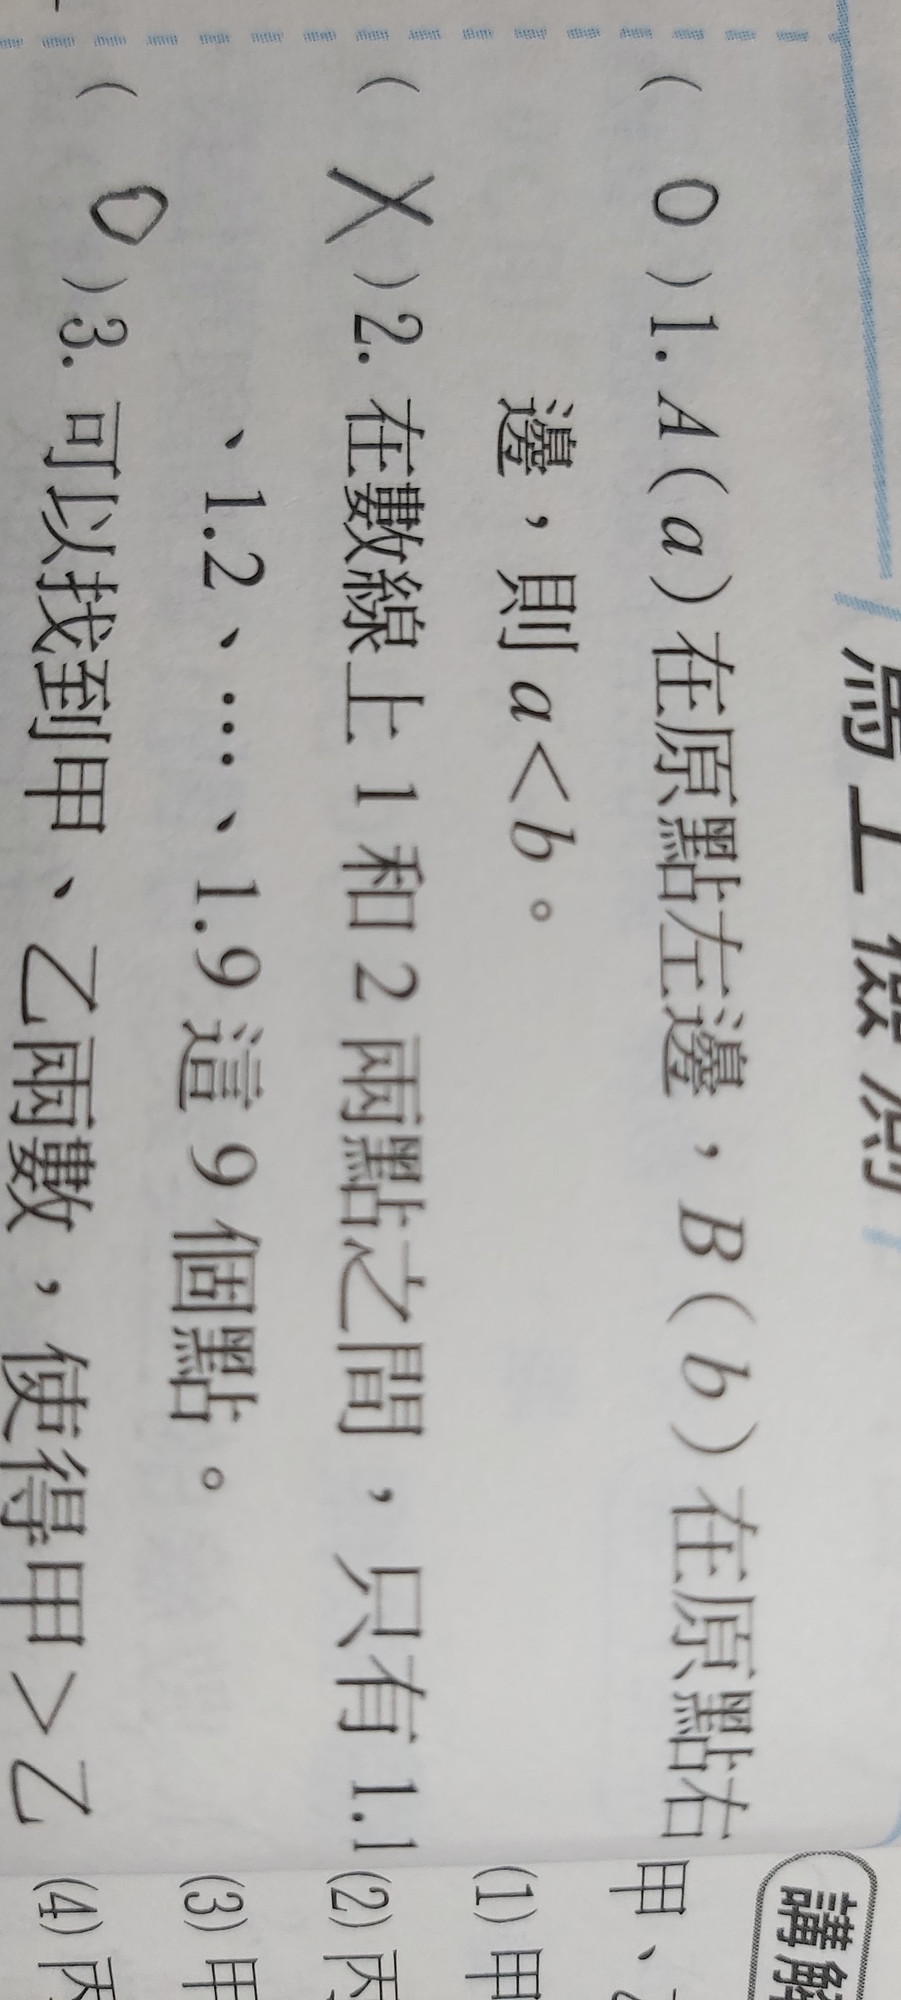 馬上檢測
( O )1. A(a)在原點左邊，B(b)在原點右
邊，則 a<b。
( X )2. 在數線上 1 和 2 兩點之間，只有 1.1
、1.2、…、1.9 這 9 個點。
( O )3. 可以找到甲、乙兩數，使得甲>乙
講解
甲、
(1) 甲
(2) 丙
(3) 甲
(4) 丙